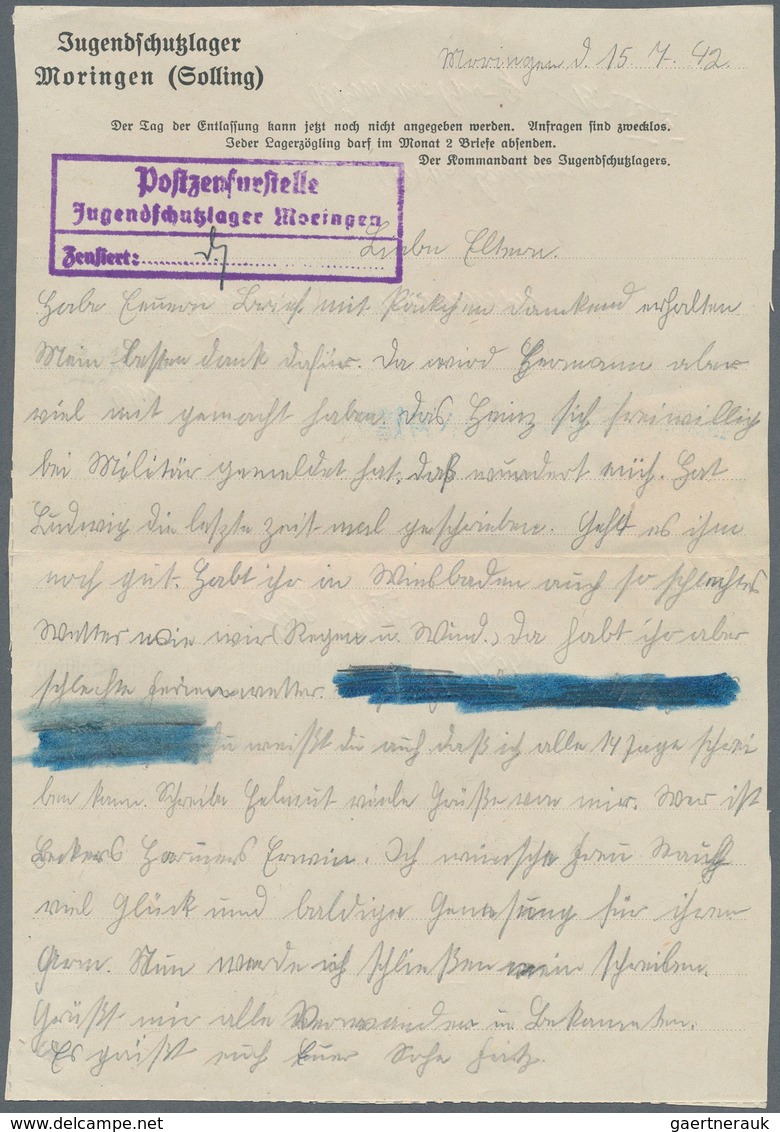 Jugendschutzlager
Moringen (Solling)
Moringen d. 15. 7. 42.
Der Tag der Entlassung kann jetzt noch nicht angegeben werden. Anfragen sind zwecklos.
Jeder Lagerzögling darf im Monat 2 Briefe absenden.
Der Kommandant des Jugendschutzlagers.
Postzensurstelle
Jugendschutzlager Moringen
Zensiert:
Liebe Eltern.
Habe Euern Brief mit Päckchen dankend erhalten
Mein besten dank dafür. Da wird Hermann aber
viel mit gemacht haben. Das Heinz sich freiwillig
bei Militär gemeldet hat, daß wundert mich. Hat
Ludwig die letzte zeit mal geschrieben. Gehlt es ihm
noch gut. Habt ihr in Wiesbaden auch so schlechtes
Wetter wie wir Regen u. Wind. Da habt ihr aber
schlechte ferienwetter.
du weißt du auch daß ich alle 14 Tage schrei
ben kann. Schreibe Helmut viele Grüße von mir. Wer ist
Beckers Erwin. Ich wünsche Frau
viel Glück und baldige Genesung für ihren
Arm. Nun werde ich schließen mein schreiben.
Grüßt mir alle Verwanden u. Bekannten.
Es grüßt euch Euer Sohn Fritz.
gaertnerauk